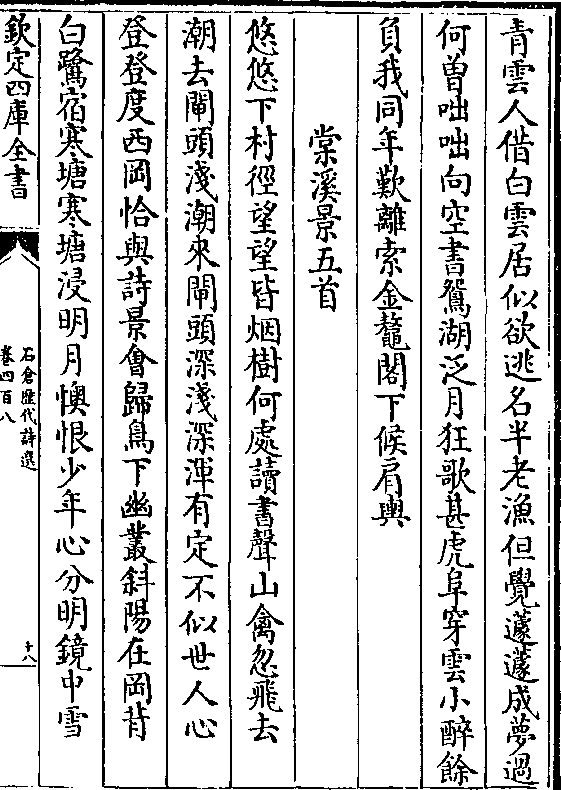 青雲人借白雲居似欲逃名半老漁但覺蘧蘧成夢過
何曽咄咄向空書鴛湖泛月狂歌甚虎阜穿雲小醉餘
負我同年歎離索金鼇閣下候肩輿
棠溪景五首
悠悠下村徑望望皆烟樹何處讀書聲山禽忽飛去
潮去閘頭淺潮來閘頭深淺深渾有定不似世人心
登登度西岡恰與詩景會歸鳥下幽叢斜陽在岡背
白鷺宿寒塘寒塘浸明月懊恨少年心分明鏡中雪
欽定四庫全書
石倉歷代詩選
卷四百八
十八